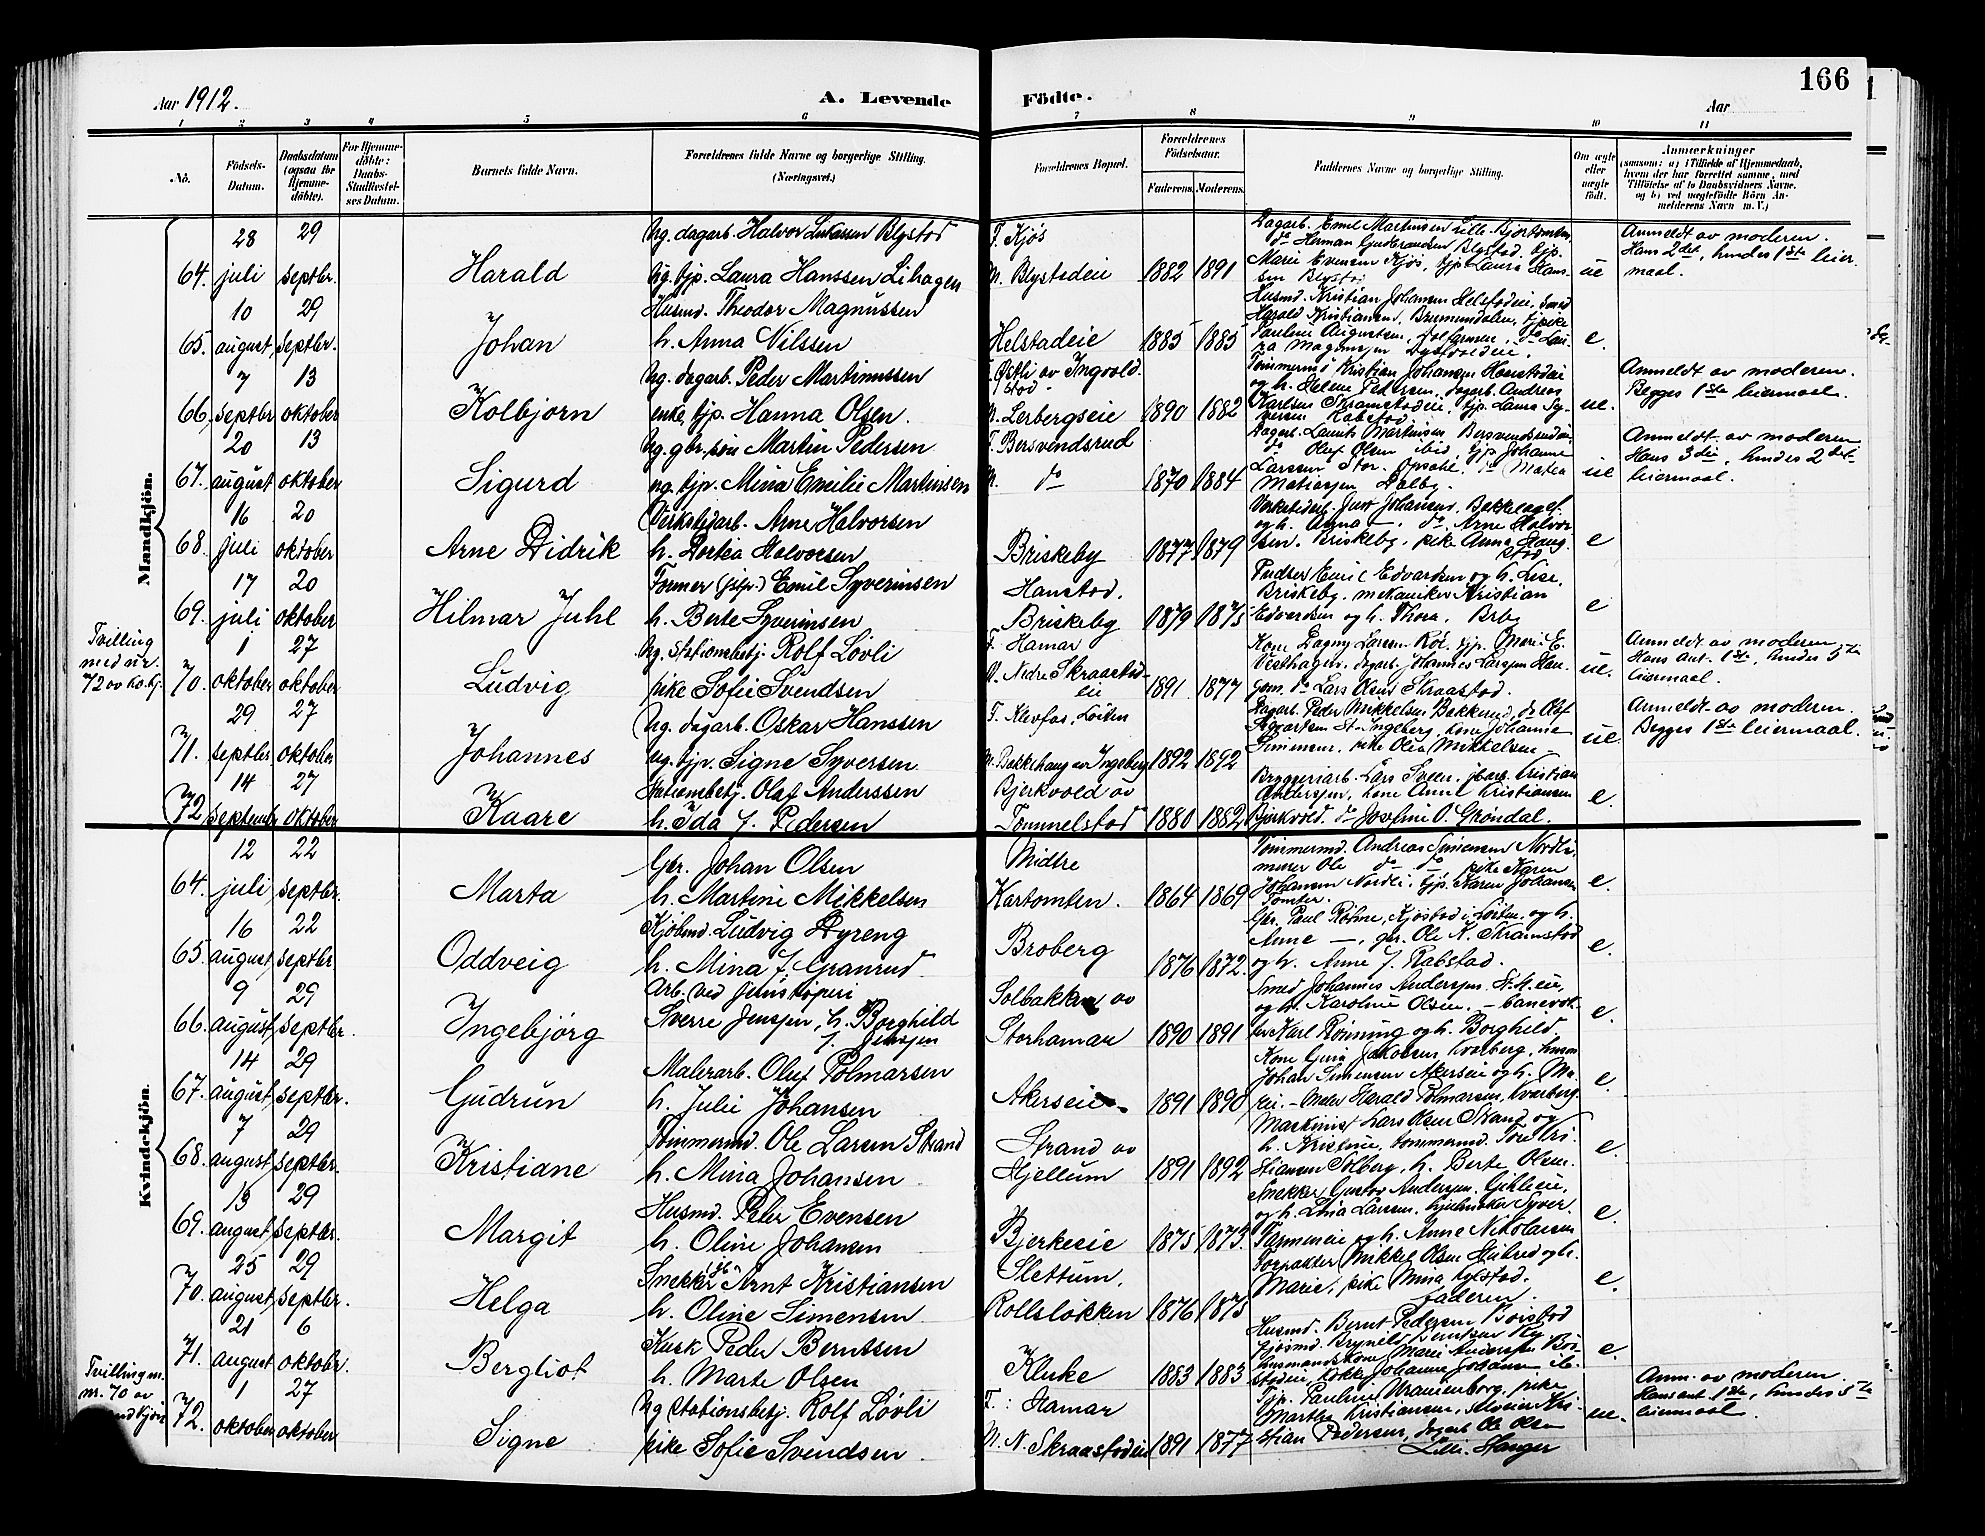 166
Aar 1912.
A. Levende Födte.
Aar
1 2 3 4 5 6 7 8 9 10 11
No.
Födsels-Datum.
Daabsdatum (ogsaa for Hjemmedöbte).
For Hjemmedöbte: Daabs-Stadfæstelses Datum.
Barnets fulde Navn.
Forældrenes fulde Navne og borgerlige Stilling. (Næringsvei.)
Forældrenes Bopæl.
Forældrenes Födselsaar.
Faderens. Moderens.
Faddernes Navne og borgerlige Stilling.
Om ægte eller uægte født.
Anmærkninger
(saasom: a) i Tilfælde af Hjemmedaab, hvem der har forrettet samme, med Tilföielse af to Daabsvidners Navne, og b) ved uægtefødte Börn Anmelderens Navn m. V.)
Mandkjön.
64. 28 juli 29 septbr. Harald
Ug. dagarb. Halvor Lukassen Blystad
ug. tjp. Laura Hanssen Lihagen
F. Kjös
M. Blystadeie 1882 1891
Dagarb. Emil Martinsen Lille-Kjörtomten
do Herman Gulbrandsen Blystad. tjp.
Marie Evensen Kjös, tjp. Laura Hanssen Blystad
ue
Anmeldt av moderen.
Hans 2det, hendes 1ste leiermaal.
65. 10 august 29 septbr. Johan
Husmd. Theodor Magnussen
h. Anna Nilssen
Helstadeie 1885 1885
Husmd. Kristian Johansen Helstadeie, smed
Harald Kristiansen, Brumunddalen, tjpike
e.
66. 7 septbr 13 oktober Kolbjorn
Ug. dagarb. Peder Martinussen
enke, tjp. Hanna Olsen.
F. Østli av Ingvoldstad
M. Lerbergseie 1890 1882
Tömmermd Kristian Johansen Hanstadeie
og h. Helene Pedersen, dagarb. Andreas
Karlsen Skramstadeie, tjp. Laura Syversen Rabstad
ue.
Anmeldt av moderen.
Begges 1ste leiermaal.
67. 20 august 13 oktober Sigurd
Ug. gbr. sön Martin Pedersen
ug. tjp. Mina Emilie Martinsen
F. Bersvendsrud
M. do 1870 1884
Dagarb. Laurits Martinsen Bersvendsrudeie
do Oluf Olsen ibid, tjp Johanne
Larssen Stor. Opsahl, do Matea
Matiassen Dalby.
ue
Anmeldt av moderen
Hans 3die, hendes 2det leiermaal.
68. 16 juli 20 oktober Arne Didrik
Verkstedarb. Arne Halvorsen
h. Dortea Halvorsen
Briskeby 1877 1879
Verkstedarb. Juel Johansen, Bekkelaget
og h. Anna —, do Arne Halvorsen. Briskeby, pike Anna Haugstad
e
69. 17 juli 20 oktober Hilmar Juhl
Former Emil Syverinsen
h. Berte Syverinsen
Hanstad.
Briskeby 1879 1875
Pudser Emil Edvardsen og h. Lise,
Briskeby. mekaniker Kristian
Edvardsen og h. Thora, Brby
e
Tvilling med nr. 72 av kv.kj.
70. 1 oktober 27 oktober Ludvig
Ug. Stationsbetj. Rolf Lövli
pike Sofie Svendsen
F. Hamar
M. Nedre Skraastadeie 1891 1877
Kone Dagny Larsen Roi. tjp. Mari E.
Vealhagen. dagarb. Johannes Larssen
do Lars Olsen Skraastad.
ue.
Anmeldt av moderen
Hans ant. 1ste, hendes 5te leiermaal.
71. 29 septbr 27 oktober Johannes
Ug. dagarb. Oskar Hanssen
ug. tjp. Signe Syversen
F. Klevfos, Löiten
M. Bakkehaug av Ingeberg 1892 1892
Dagarb. Peder Mikkelsen Bakkerud, do Olaf
Sigvartsen St. Ingeberg, kone Johanne
Simensen, pike Olea Mikkelsen
ue.
Anmeldt av moderen.
Begges 1ste leiermaal.
72. 14 septembr 27 oktober Kaare
Stationsbetj. Olaf Anderssen
h. Ida J. Pedersen
Bjerkvold av
Tommelstad 1880 1882
Bryggeriarb. Lars Sveen, jbarb. Kristian
Anderssen, kone Amil Kristiansen
Bjerkvold. do Josefine O. Gröndal.
e.
Kvindekjön.
64. 12 juli 22 septbr. Marta
Gbr. Johan Olsen
h. Martine Mikkelsen
Midtre
Kartomten. 1864 1869
Tömmermd. Andreas Simensen Nordli,
murer Ole do do pike Karen
Johansen Nordli, tjp. Karen Johansen
Tomter.
e.
65. 16 august 22 septbr Oddveig
Kjöbmd. Ludvig Dyreng
h. Mina J. Granrud
Broberg 1876 1872.
Gbr. Paul Röhne, Kjöstad i Löiten. og h.
Anne —, gbr. Ole K. Skramstad
og h. Anne J. Rabstad.
e.
66. 9 august 29 septbr. Ingebjörg
Arb. ved jernstöperi
Sverre Jenssen, h. Borghild
J. Jenssen
Solbakken av
Storhamar 1890 1891
Smed Johannes Anderssen St. H. eie,
og h. Karoline Olsen. — banevokter Karl Rönning og h. Borghild.
e.
67. 14 august 29 septbr. Gudrun
Malerarb. Oluf Polmarsen
h. Julie Johansen
Akerseie. 1891 1890
Kone Gina Jakobsen, Kvarberg, husm
Johan Simensen Akerseie og h. Mapei. — Maler Herald Polmarsen, Kvarberg.
e.
68. 7 august 29 septbr. Kristiane
Tömmermd. Ole Larsen Strand
h. Mina Johansen
Strand av
Hjellum 1891 1892
Maskinist Lars Olsen Strand og
h. Kristine, tommermd. Tore Kristiansen Solberg, h. Berte Olsen.
e.
69. 13 august 29 septbr. Margit
Husmd. Peter Evensen
h. Oline Johansen
Bjerkeeie 1875 1873.
Snekker Gustav Anderssen. Gihleeie,
og h. Lina Larssen. hjulmaker Syver.
og h. Anne Nikolaisen
e.
70. 25 august 29 septbr. Helga
Snekker Arnt Kristiansen
h. Oline Simensen
Slettum,
Rollslökken 1876 1875
Forpakter Mikkel Olsen Hulred og h.
Marie, pike Mina Kylstad.
faderen.
e.
71. 21 august 6 oktobr. Bergliot
Kusk Peder Berntsen
h. Marte Olsen
Kluke 1883 1883
Husmd. Bernt Pedersen Börstad
gjörmd. Brynild Berntsen
husmandskone Marie Anderssen Börstadeie, kokke Johanne Johansen
e.
Tvilling m. nr. 70 av Mandkjön
72. 1 oktober 27 oktober Signe
Ug Stationsbetj. Rolf Lövli
pike Sofie Svendsen
F.: Hamar
M. N. Skraastadeie 1891 1877
Tjp. Pauline Uranienborg, pike
Marthe Kristiansen, selveier Kristian Pedersen, dagarb Ole Olsen
Lille Hanger
ue.
Anm. av moderen.
Hans ant. 1ste, hendes 5te leiermaal.